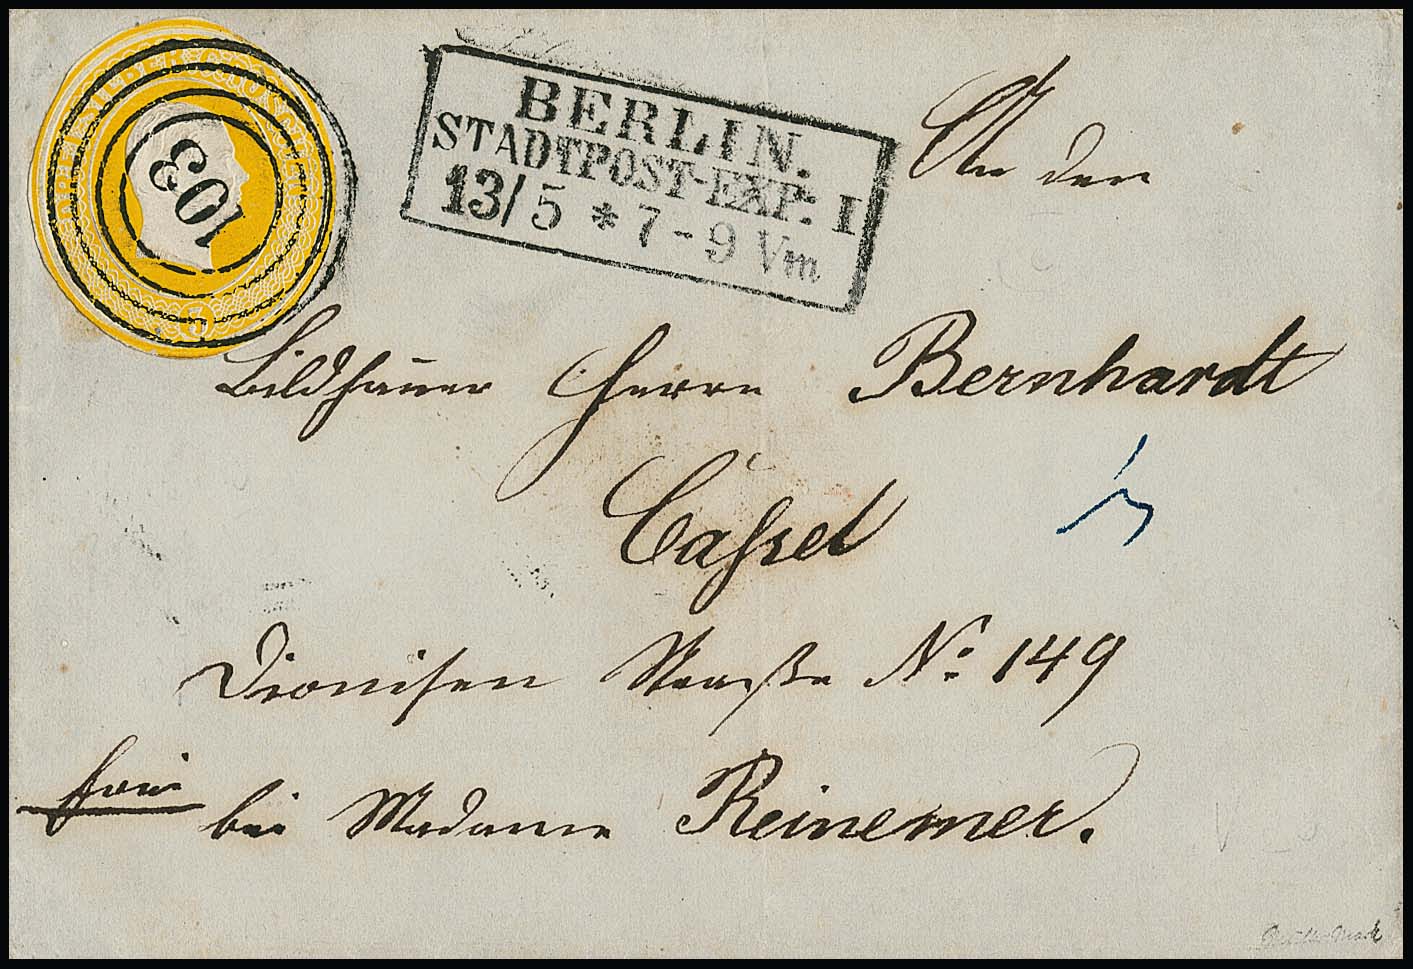 DREI SILBER GROSCHEN
3
103
BERLIN.
STADTPOST-EXP: I
13/5 * 7-9 Vm
An den
Bildhauer Herrn Bernhardt
Cassel
Dionisen Straße No: 149
frei
bei Madame Reinemer.